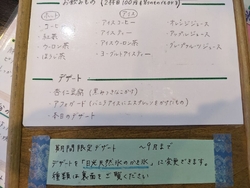 お飲みもの
ホット
アイス
コーヒー
アイスコーヒー
オレンジジュース
紅茶
アイスティー
アップルジュース
ウーロン茶
アイスウーロン茶
グレープフルーツジュース
ほうじ茶
ヨーグルトアイスティー
デザート
・杏仁豆腐
・アフォガード(バニラアイスにエスプレッソをかけたもの)
・本日のデザート
期間限定デザート 〜9月まで
デザートを「日光天然氷のかき氷」に変更できます。
種類は裏面をご覧ください